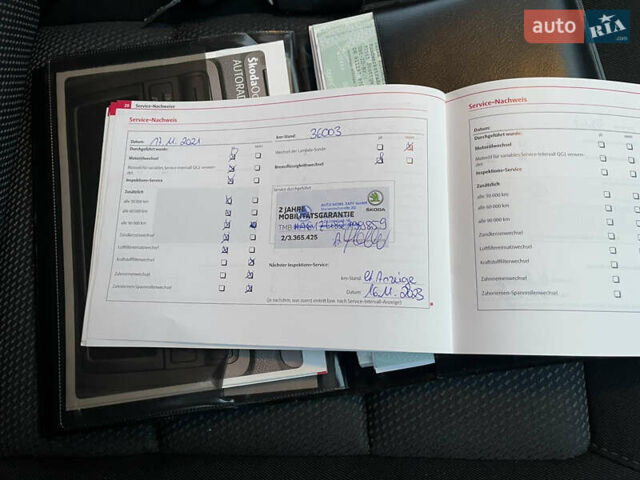 auto RIA.com
ŠkodaOc
AUTORAD
20 Service-Nachweise
Service-Nachweis
Datum: 17.11.2021
km-Stand: 36003
Durchgeführt wurde:
ja nein
Motorölwechsel
Motoröl für variables Service-Intervall QG1 verwendet
Inspektions-Service
Zusätzlich
alle 30 000 km
alle 60 000 km
alle 90 000 km
Zündkerzenwechsel
Luftfiltereinsatzwechsel
Kraftstofffilterwechsel
Zahnriemenwechsel
Zahnriemen-Spannrollenwechsel
ja nein
Wechsel der Lambda-Sonde
Bremsflüssigkeitwechsel
Service durchgeführt
2 JAHRE
MOBILITÄTSGARANTIE
TMB
2/3.365.425
ŠKODA
Nächster Inspektions-Service:
km-Stand: lt Anzeige
Datum: 16.11.2023
(je nachdem, was zuerst eintritt bzw. nach Service-Intervall-Anzeige)
Service-Nachweis
Datum:
Durchgeführt wurde:
ja nein
Motorölwechsel
Motoröl für variables Service-Intervall QG1 verwendet
Inspektions-Service
Zusätzlich
alle 30 000 km
alle 60 000 km
alle 90 000 km
Zündkerzenwechsel
Luftfiltereinsatzwechsel
Kraftstofffilterwechsel
Zahnriemenwechsel
Zahnriemen-Spannrollenwechsel